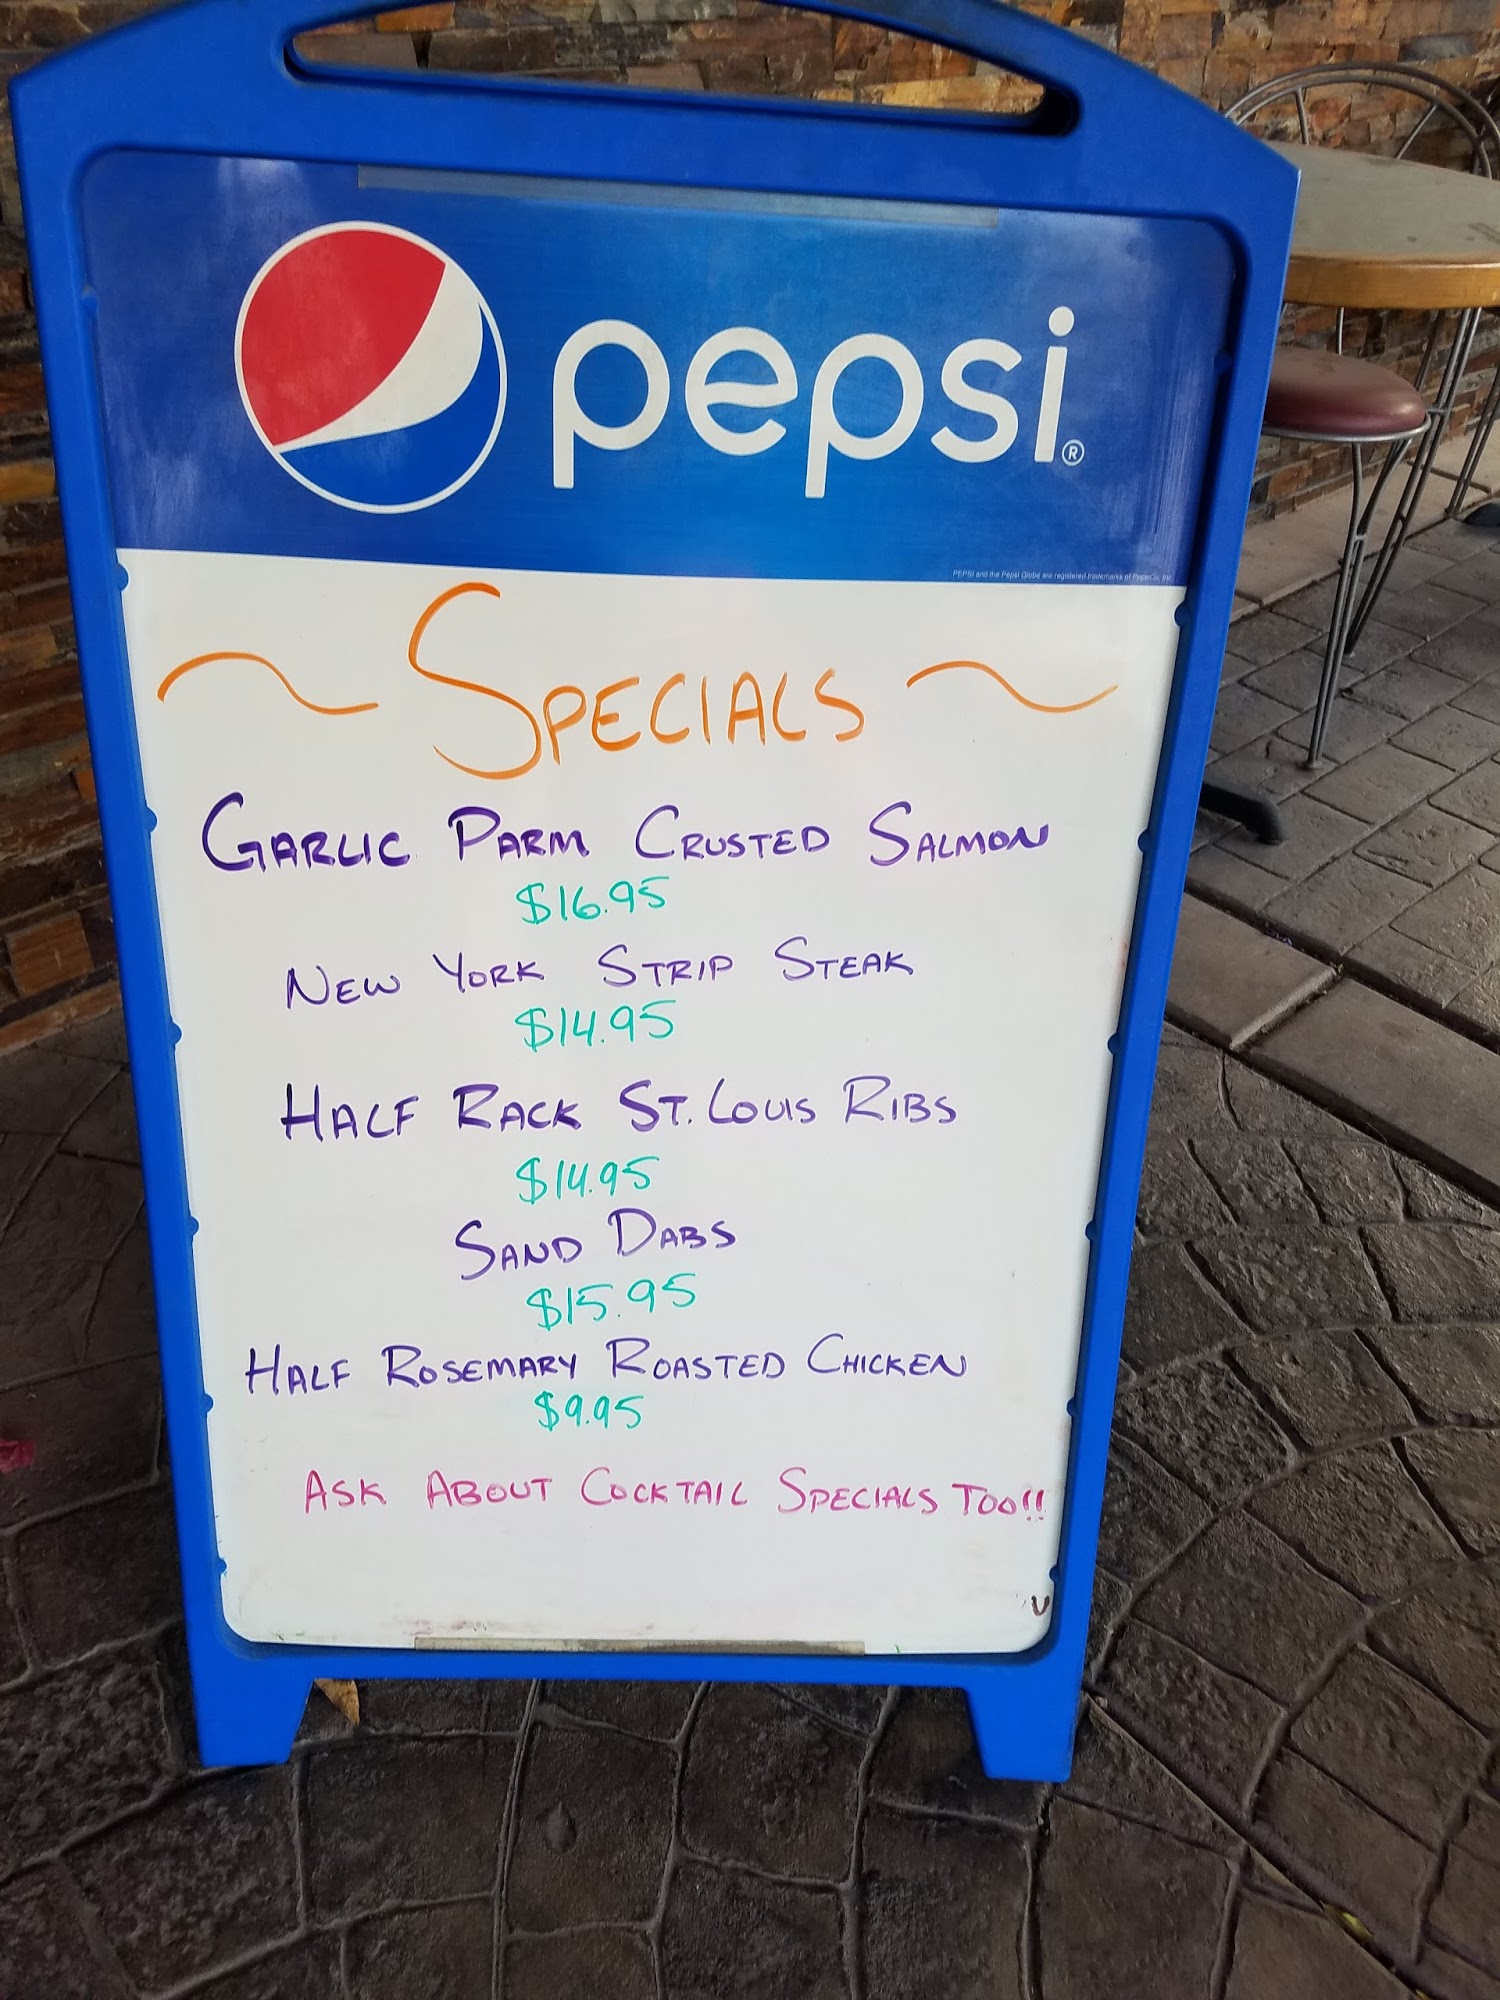 pepsi®
PEPSI and the Pepsi Globe are registered trademarks of PepsiCo, Inc.
~ SPECIALS ~
GARLIC PARM CRUSTED SALMON
$16.95
NEW YORK STRIP STEAK
$14.95
HALF RACK ST. LOUIS RIBS
$14.95
SAND DABS
$15.95
HALF ROSEMARY ROASTED CHICKEN
$9.95
ASK ABOUT COCKTAIL SPECIALS TOO!!